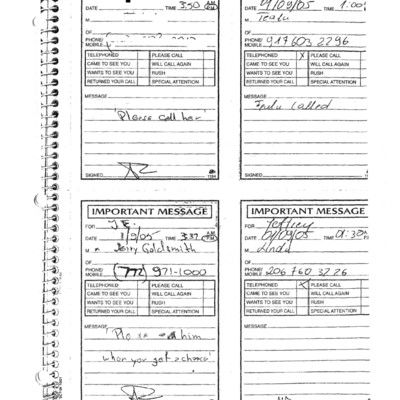 DATE TIME 3:50 AM PM
M
OF
PHONE/
MOBILE
TELEPHONED PLEASE CALL
CAME TO SEE YOU WILL CALL AGAIN
WANTS TO SEE YOU RUSH
RETURNED YOUR CALL SPECIAL ATTENTION
MESSAGE
'Please call her'
SIGNED 1184
DATE 01/09/05 TIME 1:00
M
OF
PHONE/
MOBILE 917 603 2296
TELEPHONED X PLEASE CALL
CAME TO SEE YOU WILL CALL AGAIN
WANTS TO SEE YOU RUSH
RETURNED YOUR CALL SPECIAL ATTENTION
MESSAGE
called
SIGNED
IMPORTANT MESSAGE
FOR J.E.
DATE 1/9/05 TIME 3:37 AM PM
M Jerry Goldsmith
OF
PHONE/
MOBILE (772) 971-1000
TELEPHONED PLEASE CALL
CAME TO SEE YOU WILL CALL AGAIN
WANTS TO SEE YOU RUSH
RETURNED YOUR CALL SPECIAL ATTENTION
MESSAGE
him
when you get a chance'
IMPORTANT MESSAGE
FOR Jeffrey
DATE 01/09/05 TIME 01:30
M
OF
PHONE/
MOBILE 206 760 3226
TELEPHONED X PLEASE CALL
CAME TO SEE YOU WILL CALL AGAIN
WANTS TO SEE YOU RUSH
RETURNED YOUR CALL SPECIAL ATTENTION
MESSAGE